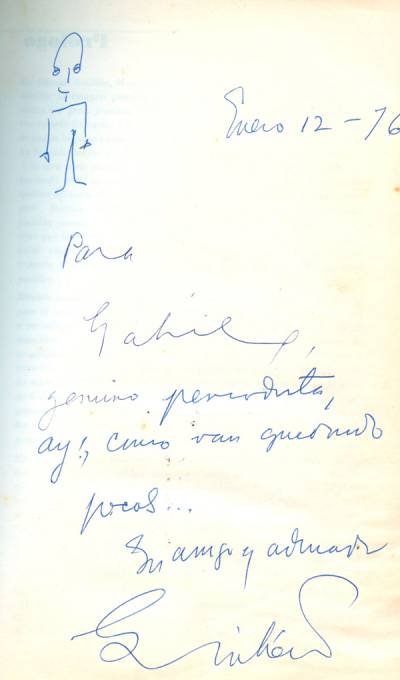 Enero 12-76
Para
Gabriel,
genuino periodista,
ay!, como van quedando
pocos...
Su amigo y admirador